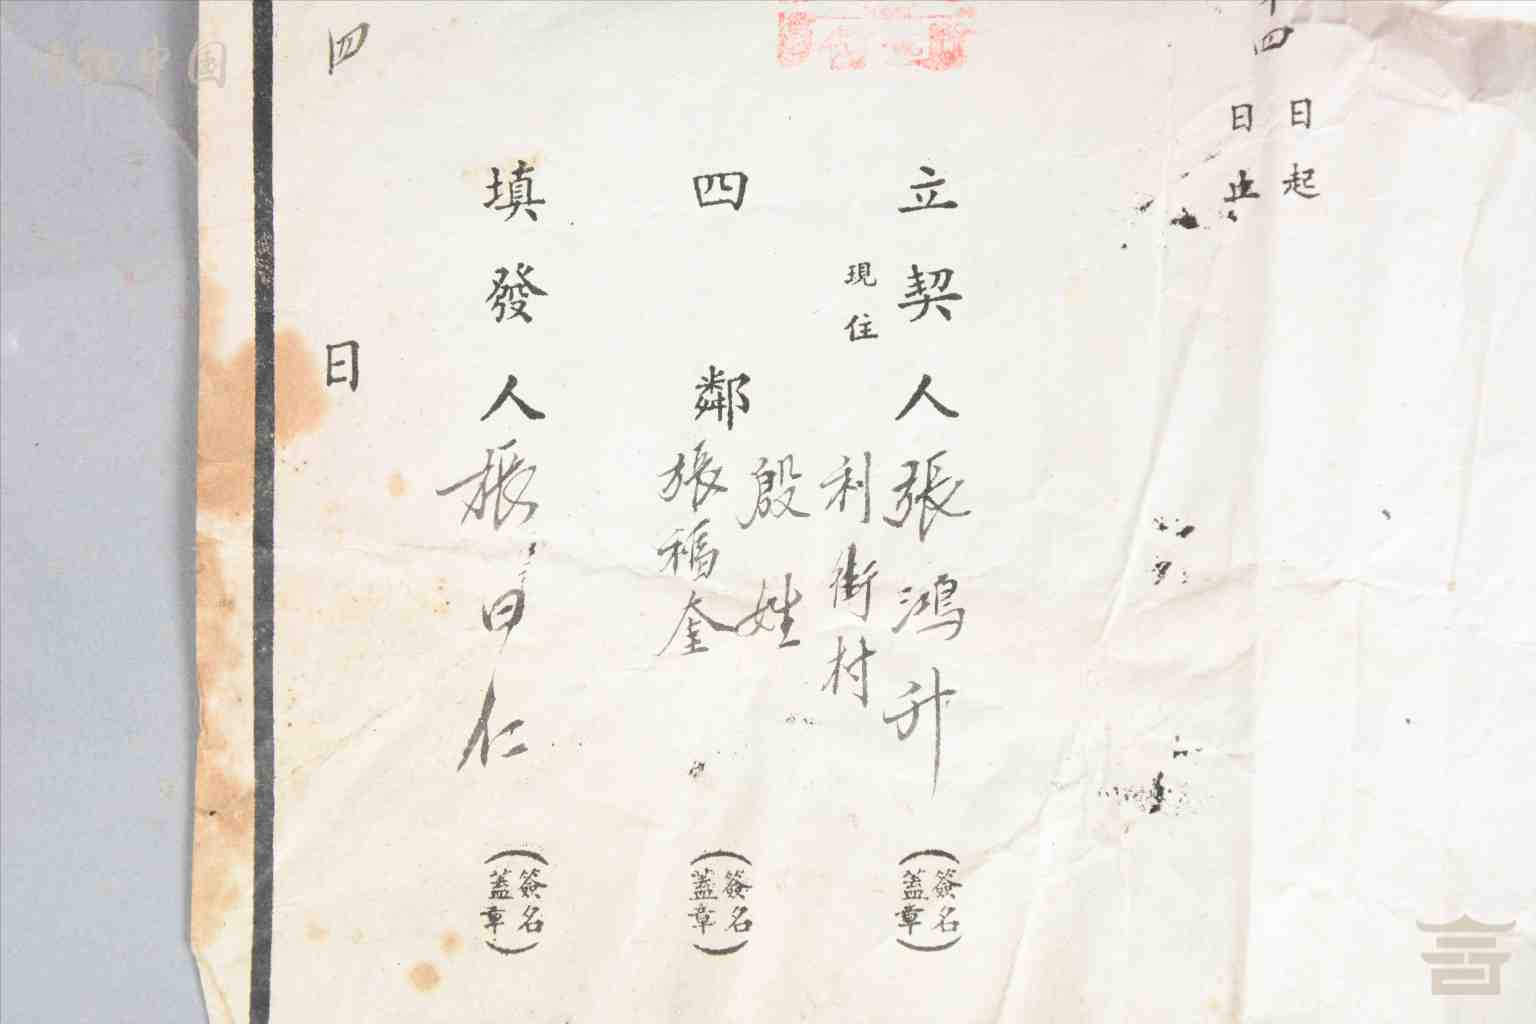 日起
四日止
立契人張鴻升（簽名蓋章）
現住利街村
四鄰殷姓（簽名蓋章）
張福奎
填發人張日仁（簽名蓋章）
四日
中国